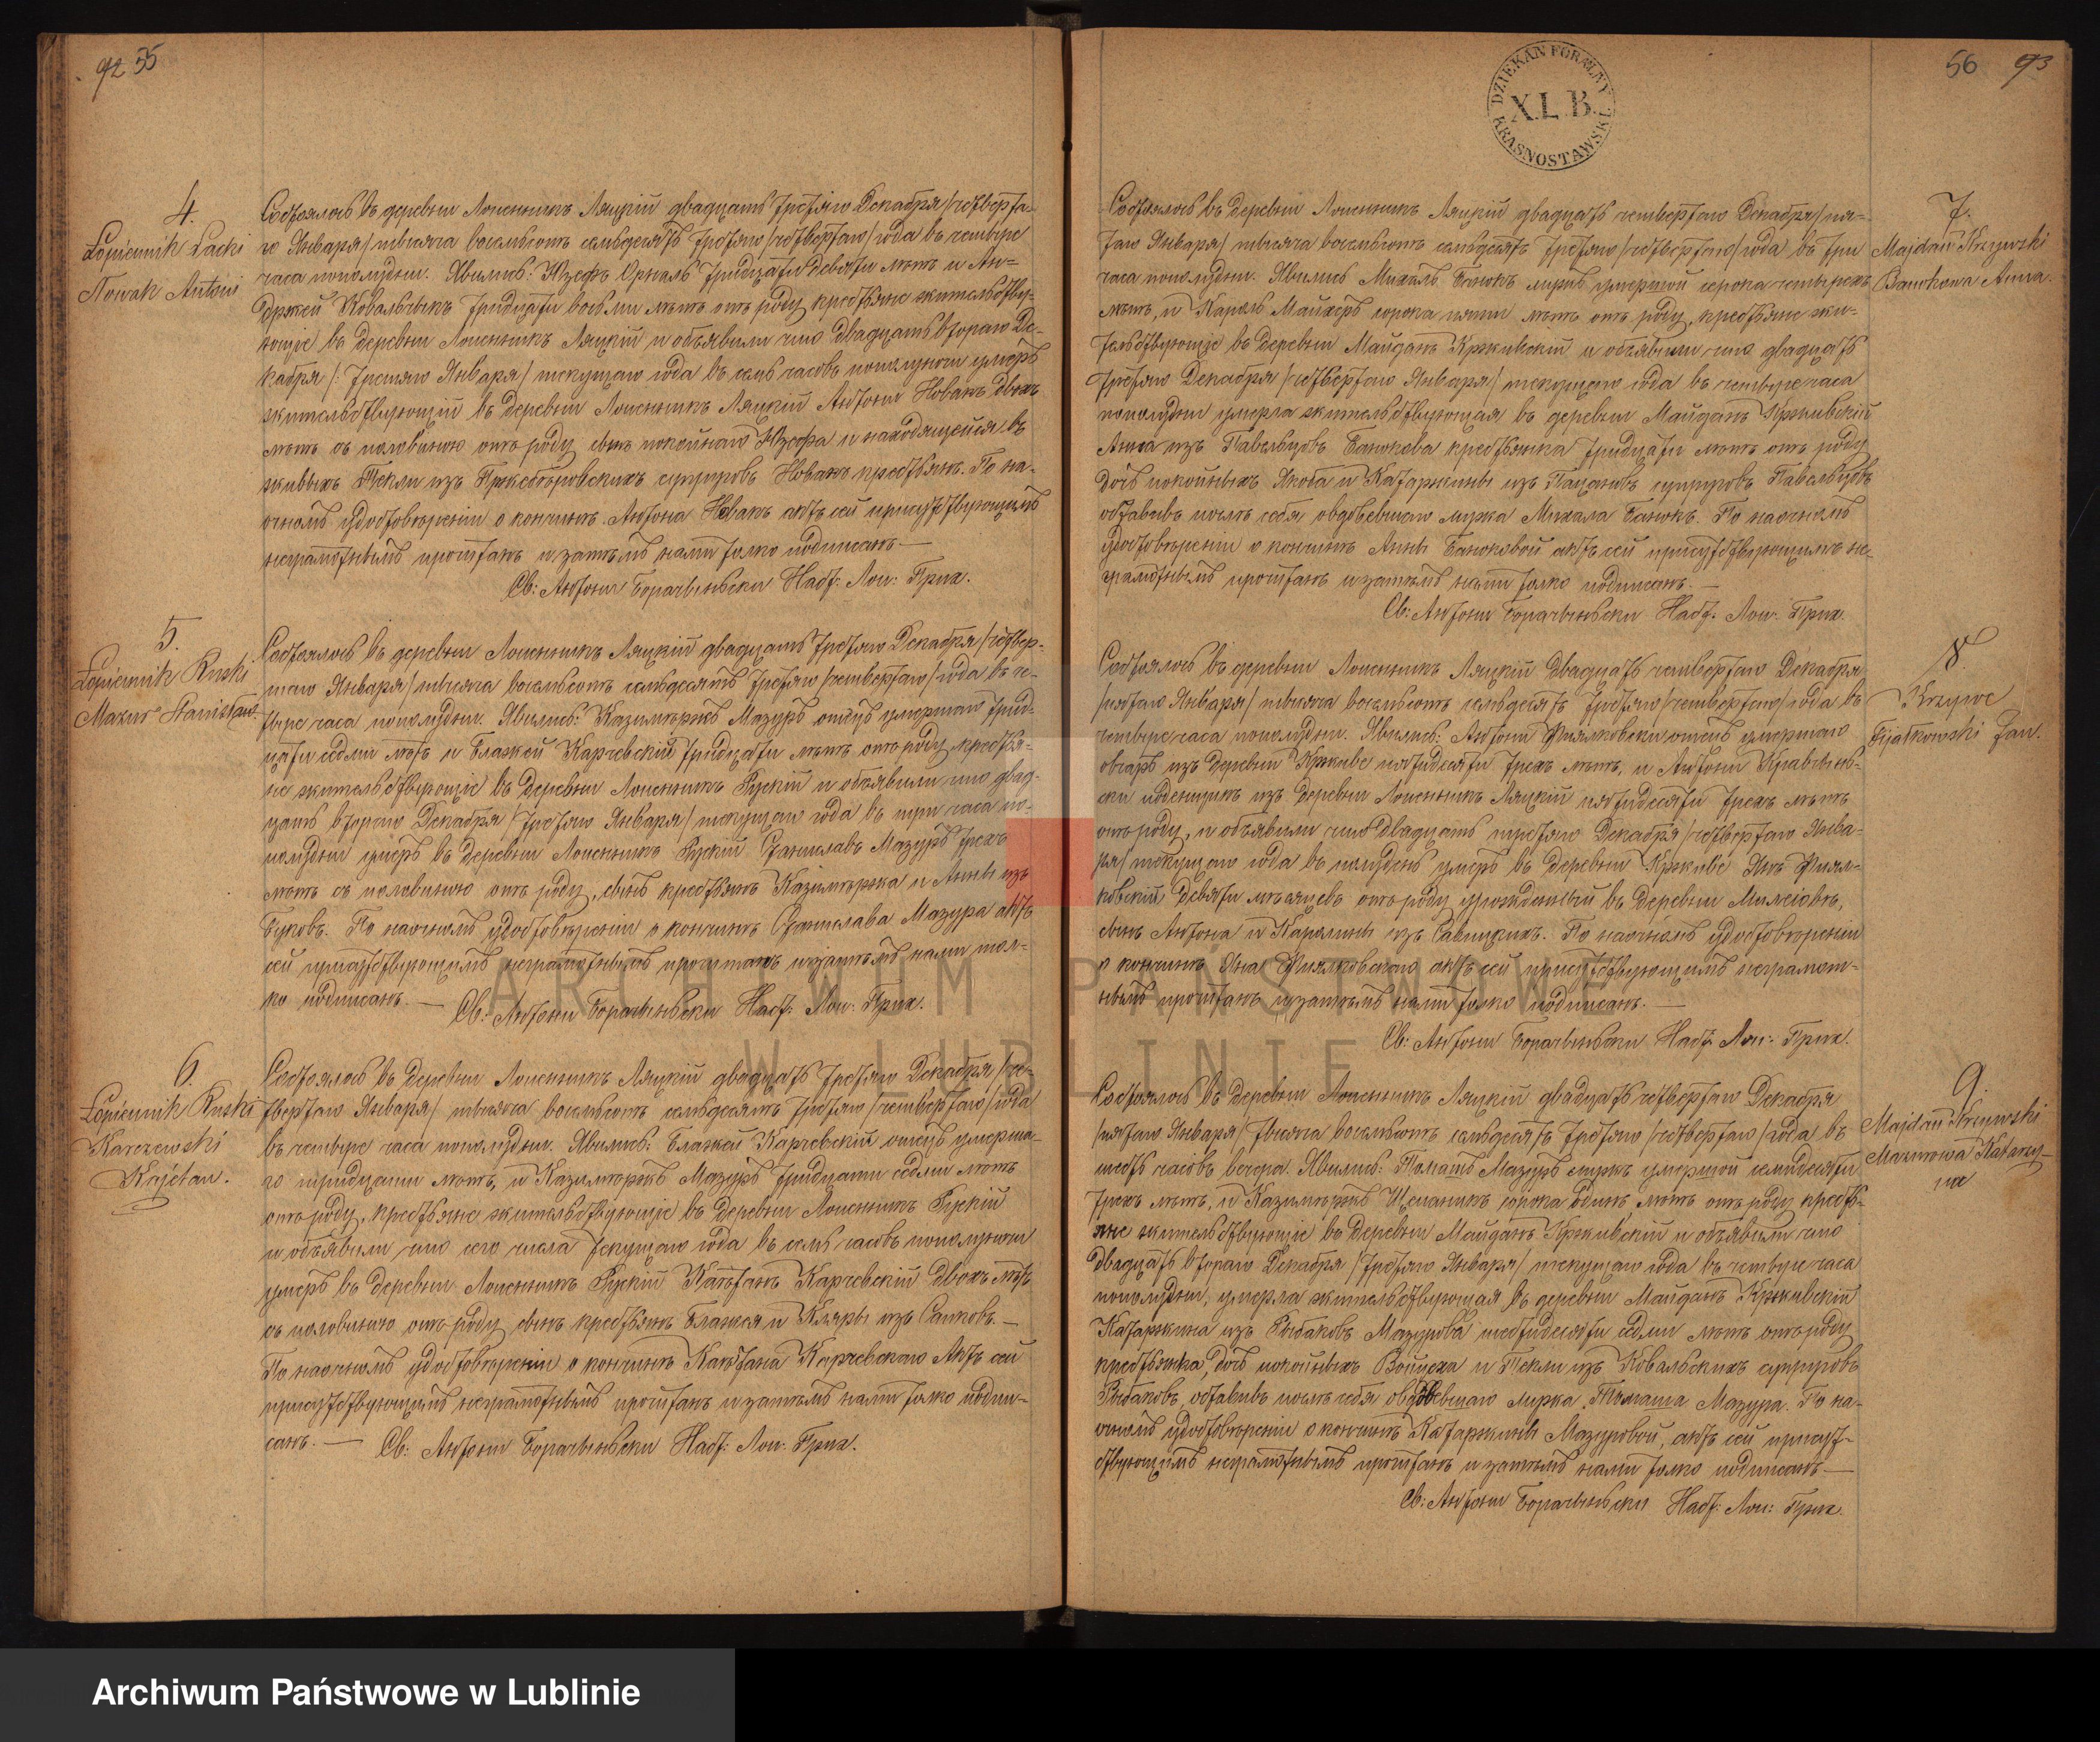 92 55
4.
Łopiennik Lacki
Nowak Antoni
Состоялось въ деревни Лопенникъ Ляцкій двадцать третяго Декабря /четверта-
го Января/ тысяча восемьсотъ семьдесятъ третяго /четвертаго/ года въ четыре
часа пополудни. Явились: Юзефъ Орналь тридцати девяти летъ и Ан-
држей Ковальчикъ тридцати восьми летъ отъ роду крестьяне жительству-
ющіе въ деревни Лопенникъ Ляцкій и объявили что двадцать втораго Де-
кабря /: третяго Января/ текущаго года въ семь часовъ пополуночи умеръ
жительствующій въ деревни Лопенникъ Ляцкій Антони Новакъ двохъ
летъ съ половиною отъ роду, сынъ покойнаго Юзефа и находящейся въ
живыхъ Текли изъ супруговъ Новакъ крестьянъ. По на-
очномъ удостовѣреніи о кончинѣ Антона Новакъ актъ сей присутствующимъ
неграмотнымъ прочтанъ и затѣмъ нами толко подписанъ. —
Св: Антони Борачыньски Наст: Лоп: Прих.
5.
Łopiennik Ruski
Mazur Stanisław
Состоялось въ деревни Лопенникъ Ляцкій двадцать третяго Декабря /четвер-
таго Января/ тысяча восемьсотъ семьдесятъ третяго /четвертаго/ года въ че-
тыре часа пополудни. Явились: Казимѣржъ Мазуръ отецъ умершаго трид-
цати седми летъ и Блажей Карчевскій тридцати летъ отъ роду крестья-
не жительствующіе въ деревни Лопенникъ Рускій и объявили что двад-
цать втораго Декабря /третяго Января/ текущаго года въ три часа по-
полудни умеръ въ деревни Лопенникъ Рускій Станиславъ Мазуръ трехъ
летъ съ половиною отъ роду, сынъ крестьянъ Казимѣржа и Анны изъ
Буковъ. По наочномъ удостовѣреніи о кончинѣ Станислава Мазура актъ
сей присутствующимъ неграмотнымъ прочитанъ и затѣмъ нами тол-
ко подписанъ. — Св: Антони Борачыньски Наст: Лоп: Прих.
6.
Łopiennik Ruski
Karczewski
Kajetan.
Состоялось въ деревни Лопенникъ Ляцкій двадцать третяго Декабря /че-
твертаго Января/ тысяча восемьсотъ семьдесятъ третяго /четвертаго/ года
въ четыре часа пополудни. Явились: Блажей Карчевскій отецъ умерша-
го тридцати летъ, и Казимѣржъ Мазуръ тридцати седми летъ
отъ роду, крестьяне жительствующіе въ деревни Лопенникъ Рускій
и объявили что сего числа текущаго года въ семь часовъ пополуночи
умеръ въ деревни Лопенникъ Рускій Каѣтанъ Карчевскій двохъ летъ
съ половиною отъ роду сынъ крестьянъ Блажея и Кляры изъ Сапковъ. —
По наочномъ удостовѣреніи о кончинѣ Каѣтана Карчевскаго Актъ сей
присутствующимъ неграмотнымъ прочтанъ и затѣмъ нами толко подпи-
санъ. — Св: Антони Борачыньски Наст: Лоп: Прих.
56 93
DZIEKAN FORALNY
X.L.B.
KRASNOSTAWSKI
7.
Majdan Krzywski
Baniukowa Anna.
Состоялось въ деревни Лопенникъ Ляцкій двадцать четвертаго Декабря /пя-
таго Января/ тысяча восемьсотъ семьдесятъ третяго /четвертаго/ года въ три
часа пополудни. Явились Михалъ Банюкъ мужъ умершой сорока четырехъ
летъ, и Кароль Майхеръ сорока пяти летъ отъ роду, крестьяне жи-
тельствующіе въ деревни Майданъ Крживскій и объявили что двадцать
третяго Декабря /четвертаго Января/ текущаго года въ четыре часа
пополудни умерла жительствующая въ деревни Майданъ Крживскій
Анна изъ Павельцовъ Банюкова крестьянка тридцати летъ отъ роду
дочь покойныхъ Якоба и Катаржины изъ Пацановъ супруговъ Павельцовъ
оставивъ послѣ себя овдовевшаго мужа Михала Банюкъ. По наочномъ
удостовѣреніи о кончинѣ Анны Банюковой актъ сей присутствующимъ не-
грамотнымъ прочтанъ и затѣмъ нами толко подписанъ. —
Св: Антони Борачыньски Наст: Лоп: Прих.
8.
Krzywe
Fijałkowski Jan.
Состоялось въ деревни Лопенникъ Ляцкій двадцать четвертаго Декабря
/пятаго Января/ тысяча восемьсотъ семьдесятъ третяго /четвертаго/ года въ
четыре часа пополудни. Явились: Антони Фиялковски отецъ умершаго
овчаръ изъ деревни Крживе пятидесяти трехъ летъ, и Антони Кравчынь-
ски поденщикъ изъ деревни Лопенникъ Ляцкій пятидесяти трехъ летъ
отъ роду, и объявили что двадцать третяго Декабря /четвертаго Янва-
ря/ текущаго года въ полудень умеръ въ деревни Крживе Янъ Фиял-
ковскій девяти мѣсяцевъ отъ роду урожденный въ деревни
сынъ Антона и Каролины изъ Савицкихъ. По наочномъ удостовѣреніи
о кончинѣ Яна Фиялковскаго актъ сей присутствующимъ неграмот-
нымъ прочтанъ и затѣмъ нами толко подписанъ. —
Св: Антони Борачыньски Наст: Лоп: Прих.
9.
Majdan Krzywski
Mazurowa Katarzy-
na
Состоялось въ деревни Лопенникъ Ляцкій двадцать четвертаго Декабря
/пятаго Января/ тысяча восемьсотъ семьдесятъ третяго /четвертаго/ года въ
шесть часовъ вечера. Явились: Томашъ Мазуръ мужъ умершой семидесяти
трехъ летъ, и Казимѣржъ Щепаникъ сорока одинъ летъ отъ роду, кресть-
яне жительствующіе въ деревни Майданъ Крживскій и объявили что
двадцать втораго Декабря /третяго Января/ текущаго года въ четыре часа
пополудни, умерла жительствующая въ деревни Майданъ Крживскій
Катаржина изъ Рыбаковъ Мазурова шестидесяти седми летъ отъ роду
крестьянка, дочь покойныхъ Войцеха и Текли изъ Ковальскихъ супруговъ
Рыбаковъ, оставивъ послѣ себя овдовевшаго мужа Томаша Мазура. По на-
очномъ удостовѣреніи о кончинѣ Катаржины Мазуровой, актъ сей присут-
ствующимъ неграмотнымъ прочтанъ и затѣмъ нами толко подписанъ —
Св: Антони Борачыньски Наст: Лоп: Прих.
ARCHIWUM PAŃSTWOWE
W LUBLINIE
Archiwum Państwowe w Lublinie